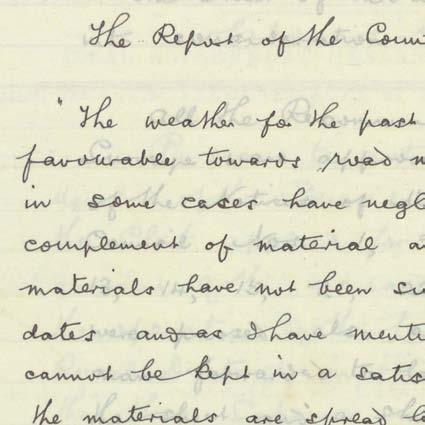 The Report of the Coun
"The weather for the past
favourable towards road m
in some cases have negl
complement of material a
materials have not been su
dates and as I have menti
cannot be kept in a satis
the materials are spread